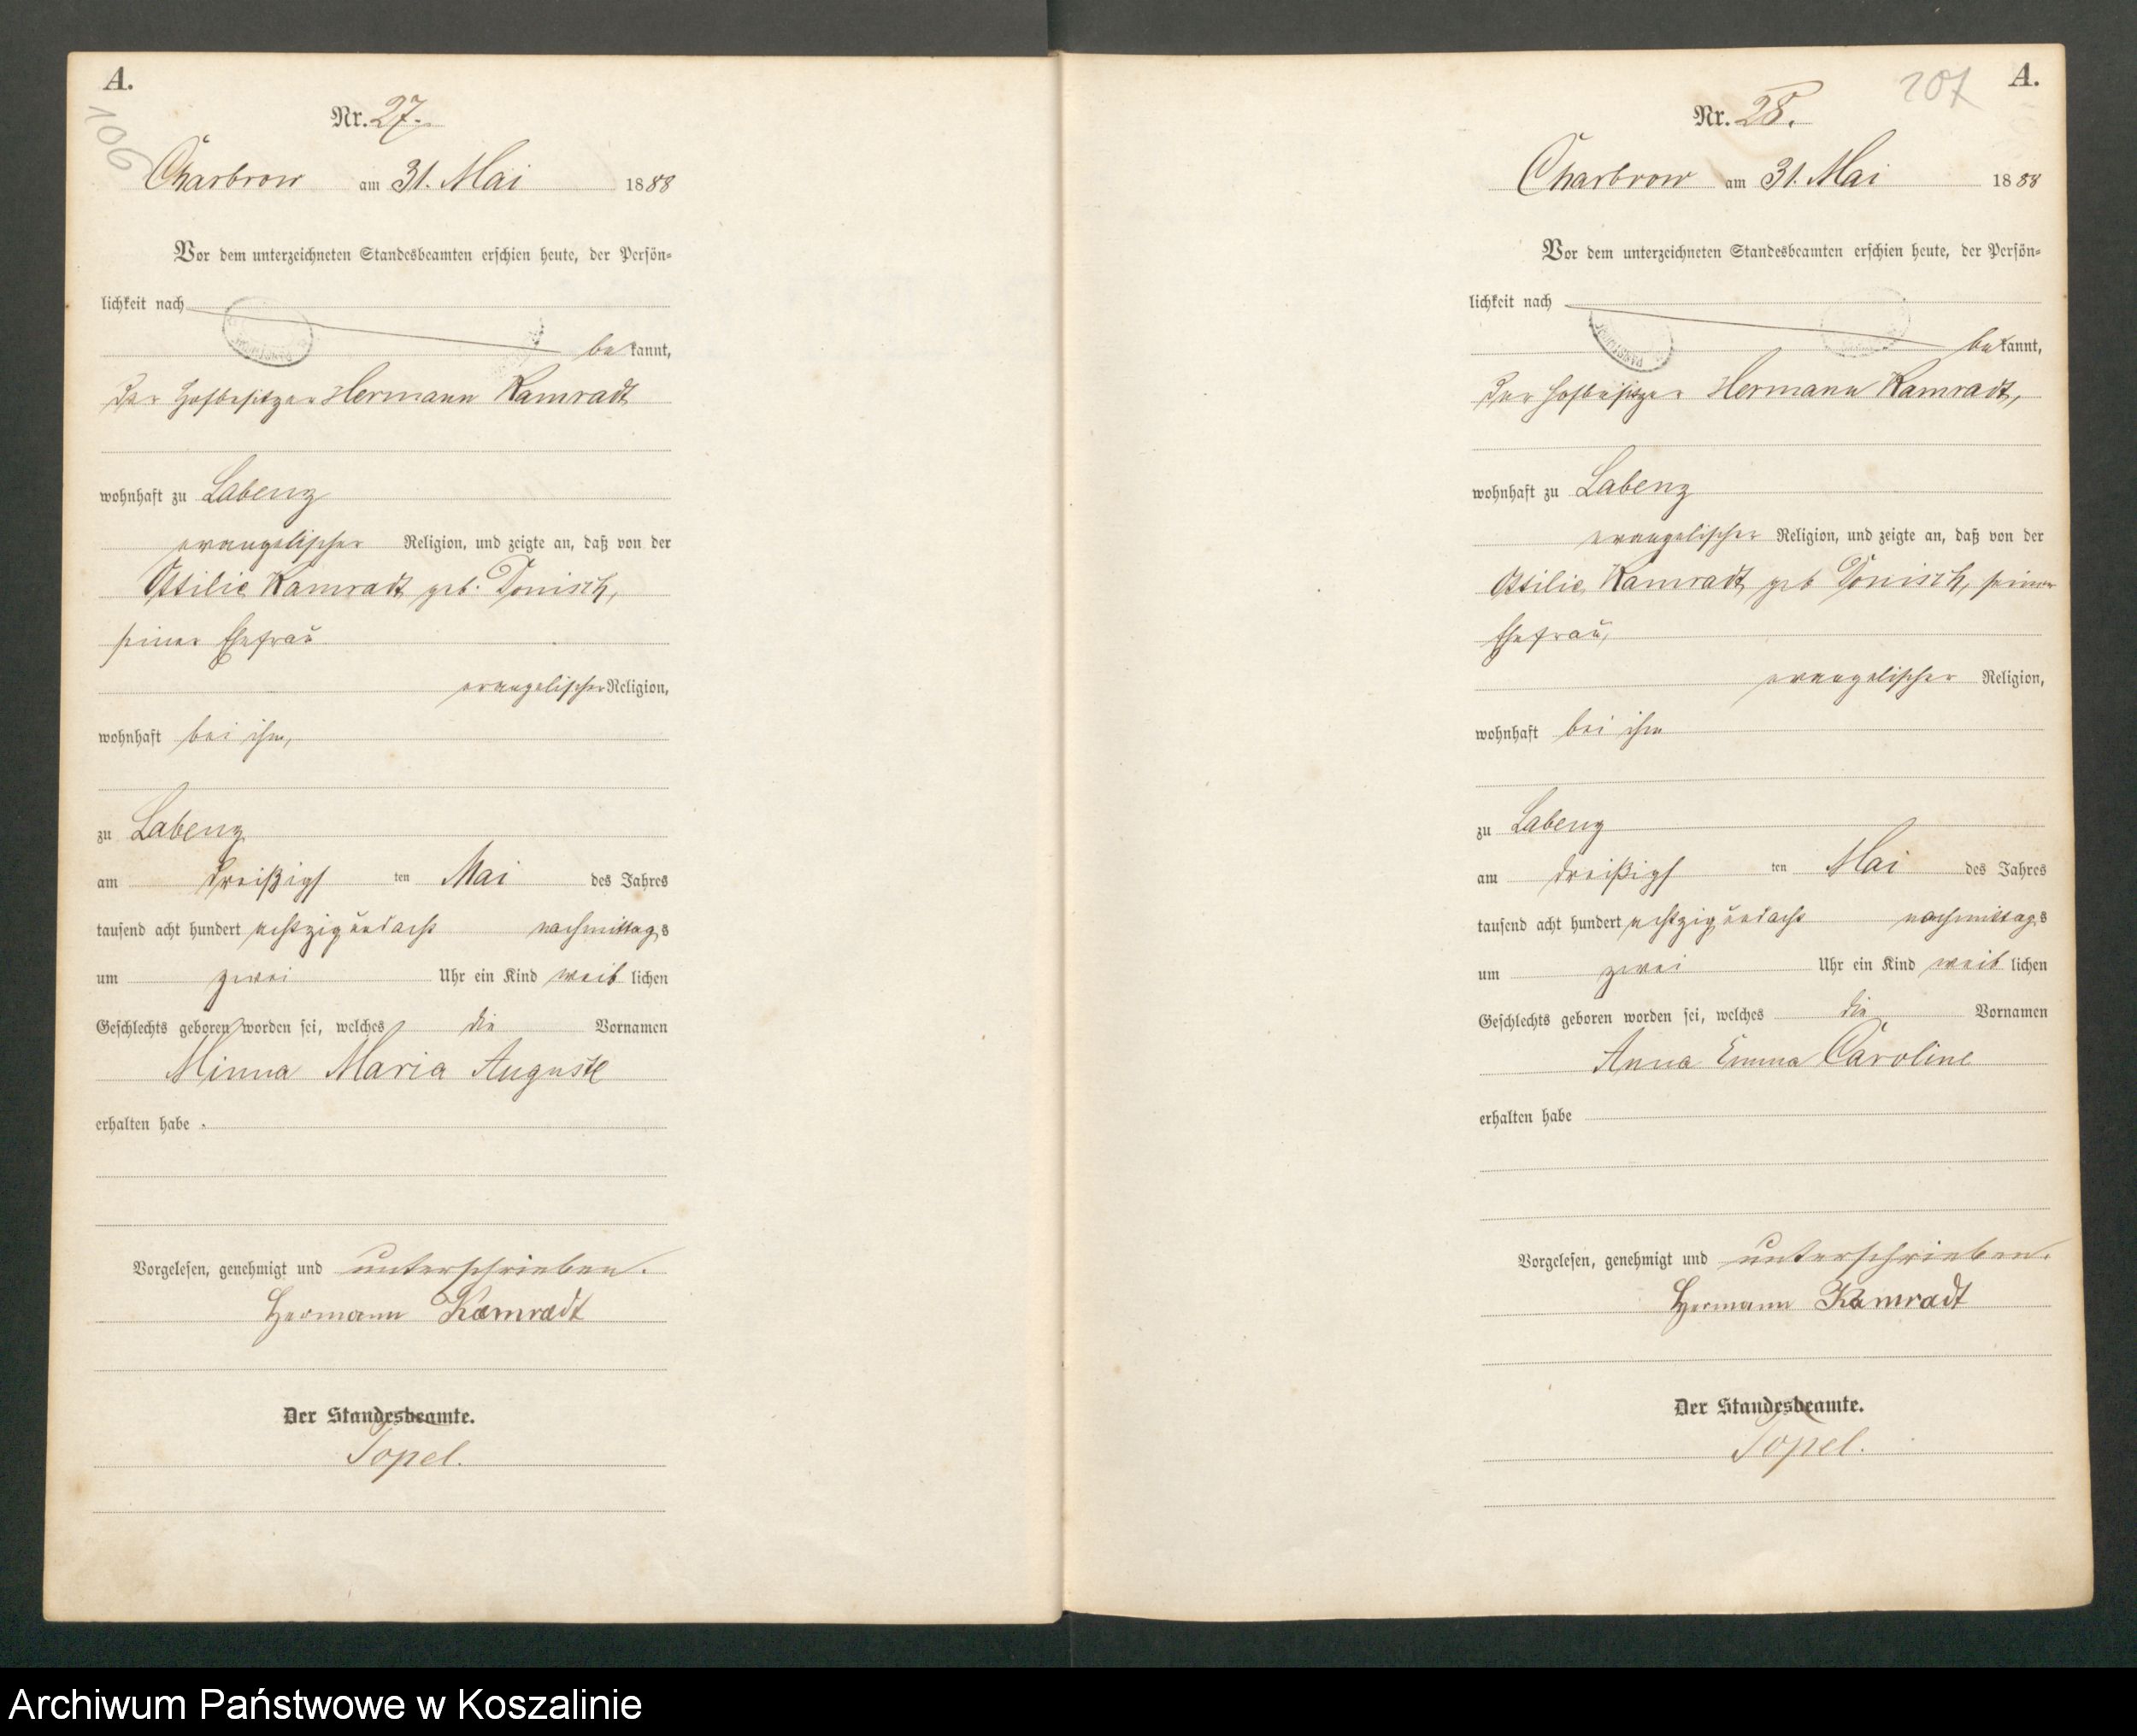 A.
106
Nr. 27.
Charbrow am 31. Mai 1888
Vor dem unterzeichneten Standesbeamten erschien heute, der Persön-
lichkeit nach
bekannt,
der Hofbesitzer Hermann Kamradt
wohnhaft zu Labenz
evangelischer Religion, und zeigte an, daß von der
Ottilie Kamradt geb. Donisch,
seiner Ehefrau
evangelischer Religion,
wohnhaft bei ihm,
zu Labenz
am dreißigsten Mai des Jahres
tausend acht hundert achtzig und acht nachmittags
um zwei Uhr ein Kind weiblichen
Geschlechts geboren worden sei, welches die Vornamen
Minna Maria Auguste
erhalten habe.
Vorgelesen, genehmigt und unterschrieben.
Hermann Kamradt
Der Standesbeamte.
Topel.
207 A.
Nr. 28.
Charbrow am 31. Mai 1888
Vor dem unterzeichneten Standesbeamten erschien heute, der Persön-
lichkeit nach
bekannt,
der Hofbesitzer Hermann Kamradt,
wohnhaft zu Labenz
evangelischer Religion, und zeigte an, daß von der
Ottilie Kamradt geb Donisch, seiner
Ehefrau,
evangelischer Religion,
wohnhaft bei ihm
zu Labenz
am dreißigsten Mai des Jahres
tausend acht hundert achtzig und acht nachmittags
um zwei Uhr ein Kind weiblichen
Geschlechts geboren worden sei, welches die Vornamen
Anna Emma Caroline
erhalten habe
Vorgelesen, genehmigt und unterschrieben.
Hermann Kamradt
Der Standesbeamte.
Topel.
Archiwum Państwowe w Koszalinie